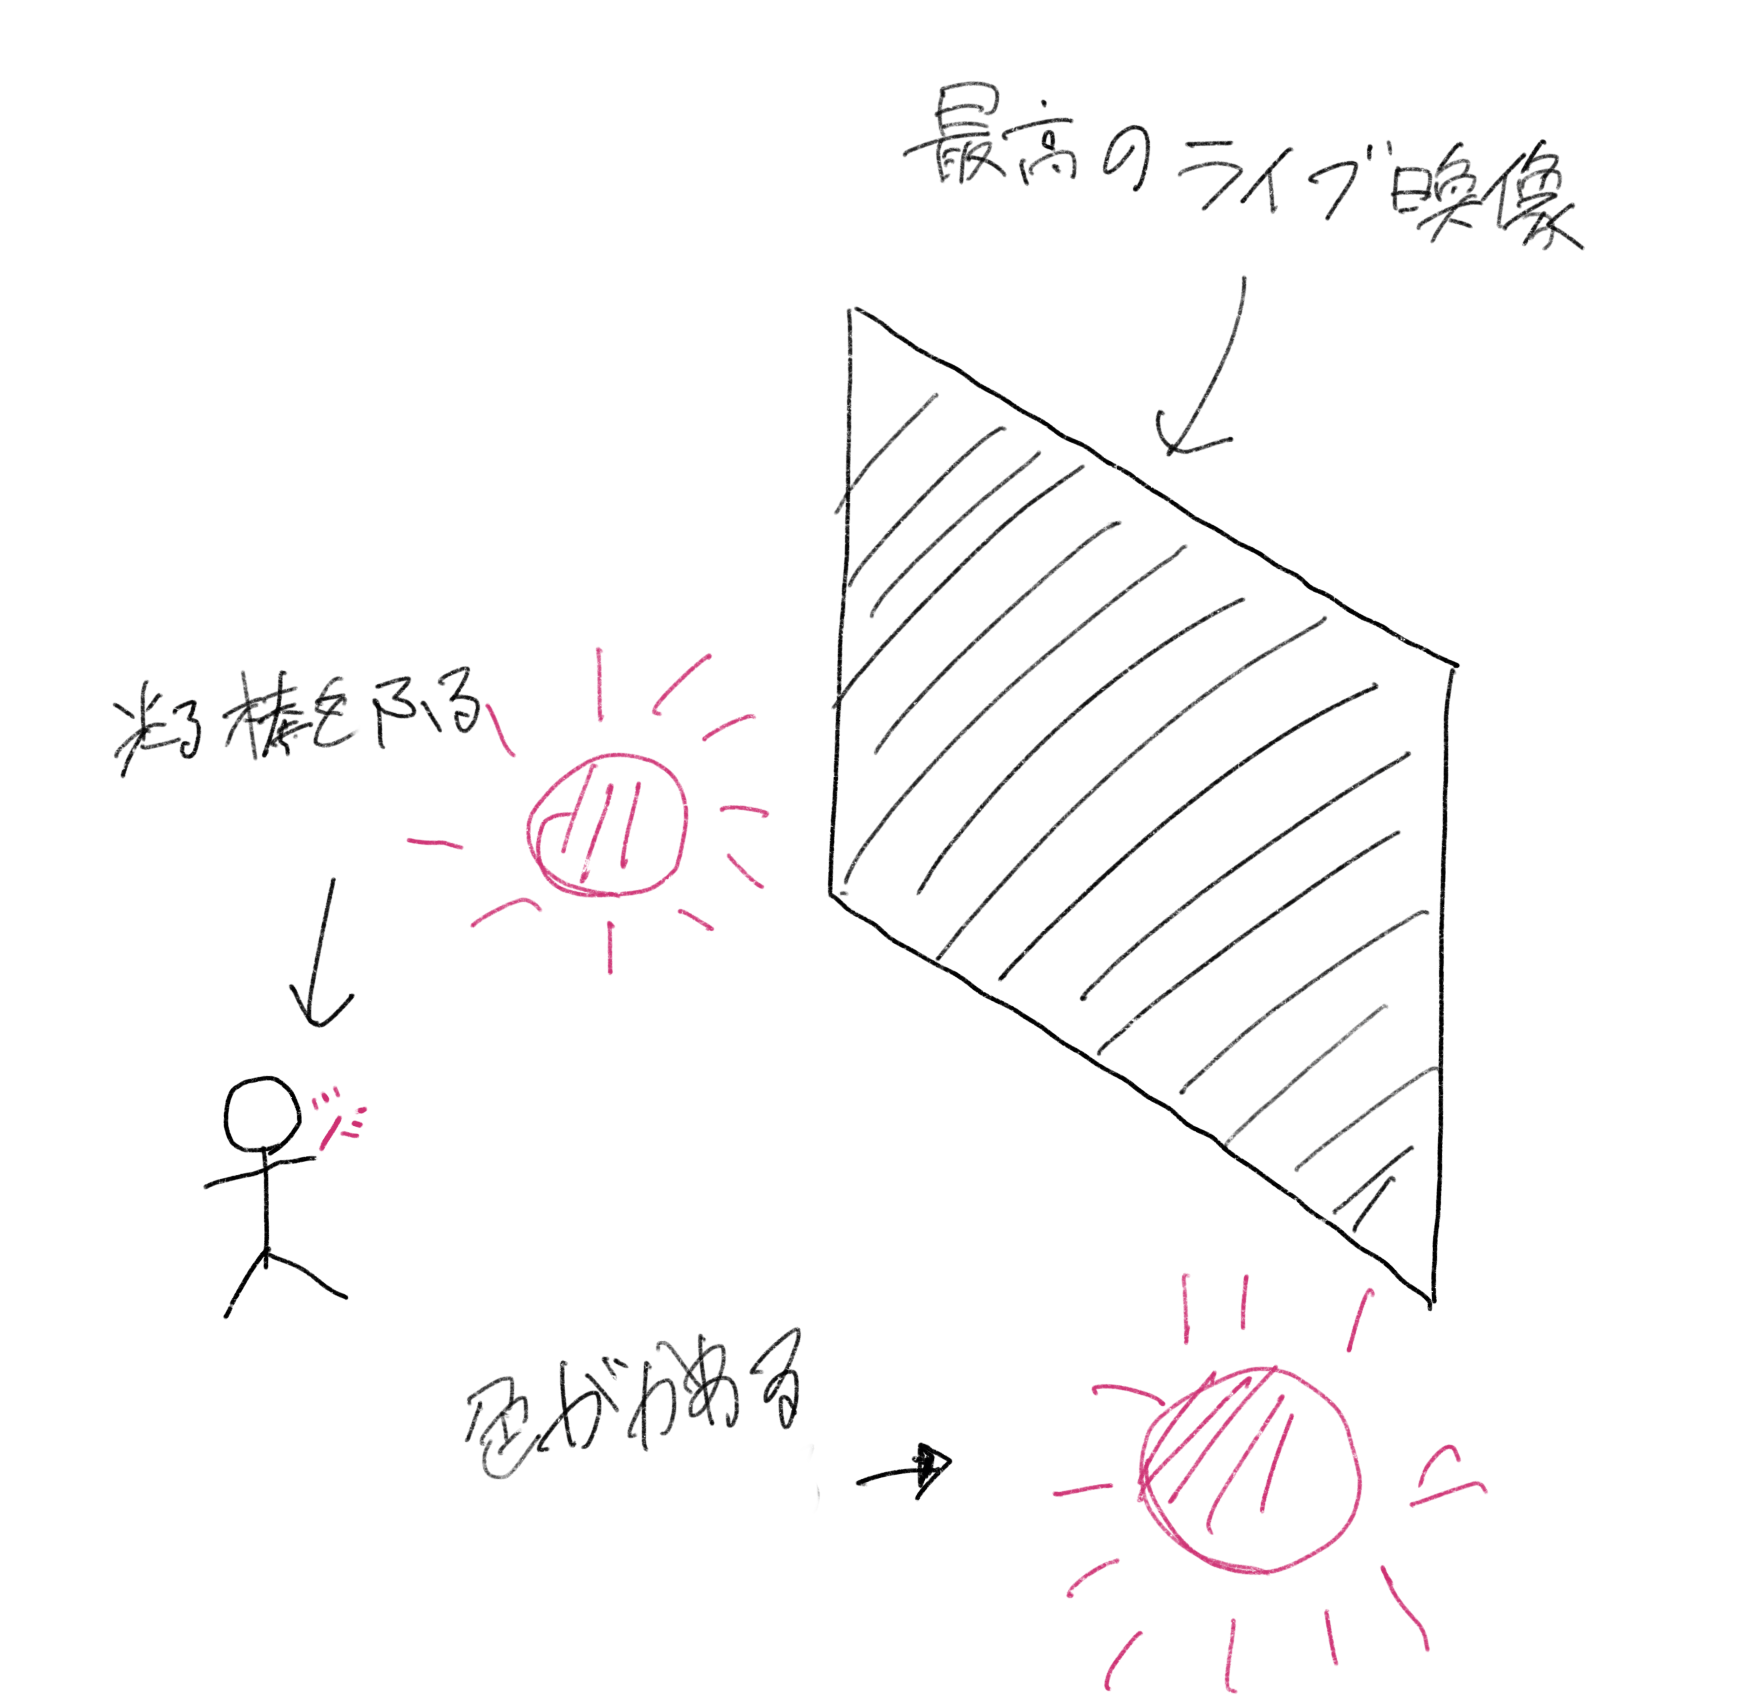 最高のライブ映像
光る棒をふる
色がかわる